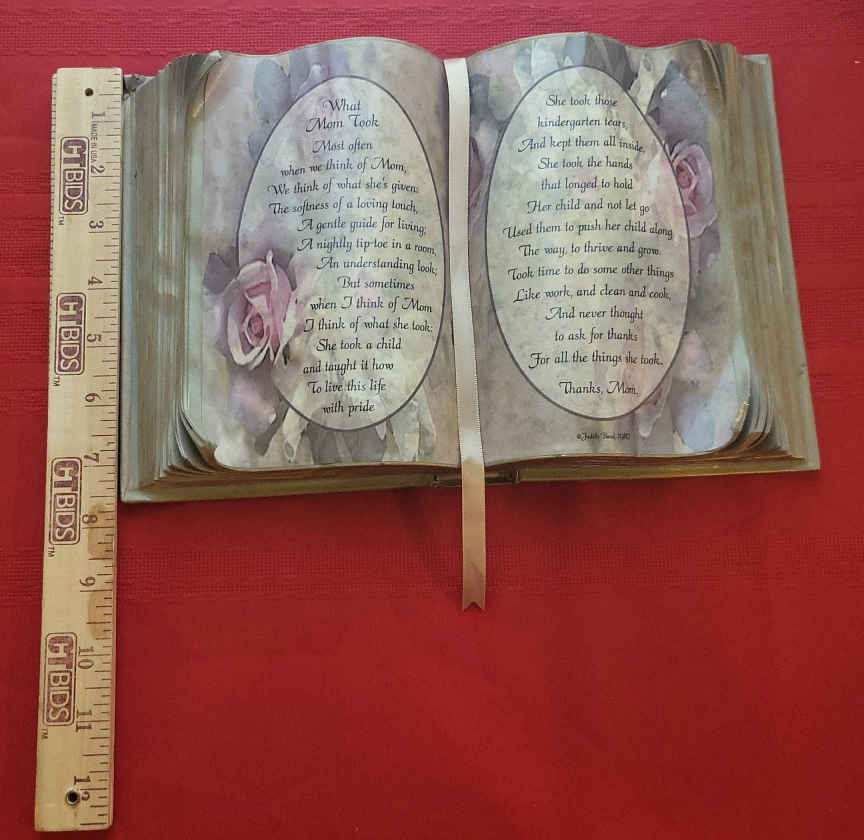 What
Mom Took
Most often
when we think of Mom,
We think of what she's given:
The softness of a loving touch,
A gentle guide for living;
A nightly tip-toe in a room,
An understanding look;
But sometimes
when I think of Mom
I think of what she took:
She took a child
and taught it how
To live this life
with pride
She took those
kindergarten tears,
And kept them all inside,
She took the hands
that longed to hold
Her child and not let go
Used them to push her child along
The way, to thrive and grow.
Took time to do some other things
Like work, and clean and cook,
And never thought
to ask for thanks
For all the things she took.
Thanks, Mom.
© Judith Bond,
MADE IN USA
CTBIDS TM
CTBIDS TM
CTBIDS TM
CTBIDS TM
1
2
3
4
5
6
7
8
9
10
11
12